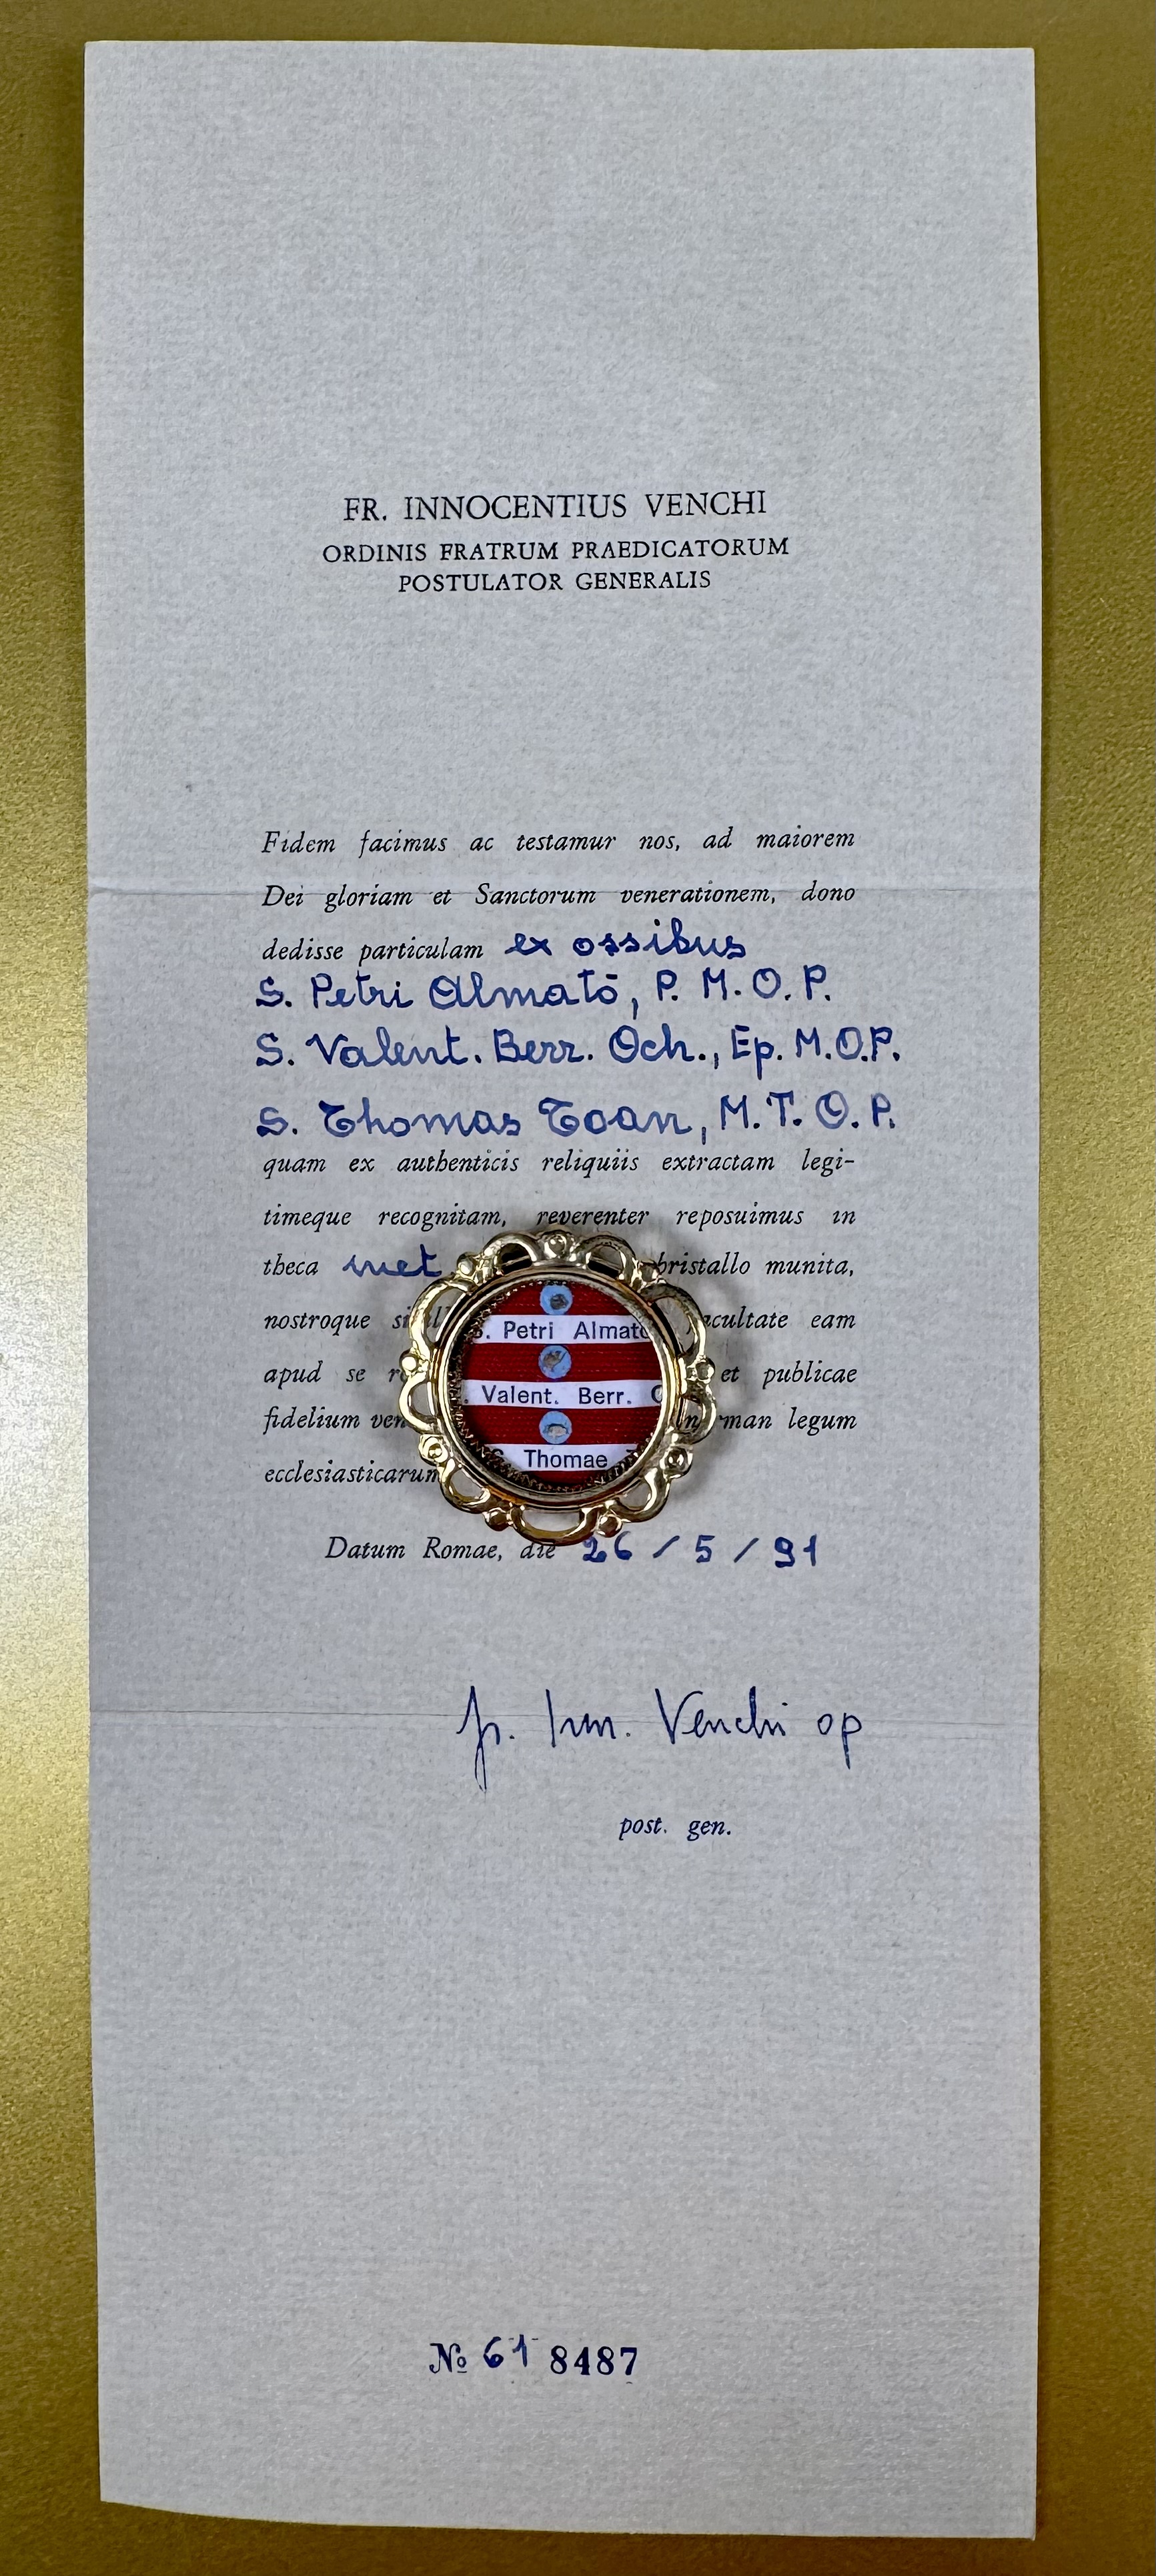 FR. INNOCENTIUS VENCHI
ORDINIS FRATRUM PRAEDICATORUM
POSTULATOR GENERALIS
Fidem facimus ac testamur nos, ad maiorem
Dei gloriam et Sanctorum venerationem, dono
dedisse particulam ex ossibus
S. Petri Almató, P. M. O. P.
S. Valent. Berr. Och., Ep. M.O.P.
S. Thomas Toan, M. T. O. P.
quam ex authenticis reliquiis extractam legi-
timeque recognitam, reverenter reposuimus in
theca met munita,
nostroque eam
apud se et publicae
fidelium legum
ecclesiasticarum
S. Petri Almató
Valent. Berr.
Thomae
Datum Romae, die 26 / 5 / 91
fr. Inn. Venchi op
post. gen.
№ 61 8487